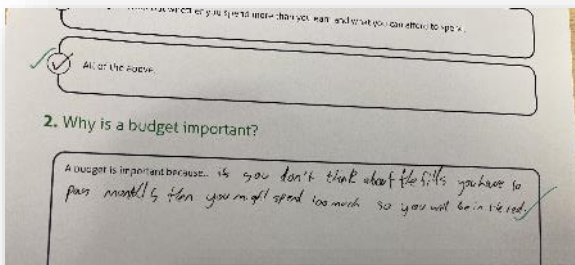 whether you spend more than you earn and what you can afford to spend.
All of the above.
2. Why is a budget important?
A budget is important because... if you don't think about the bills you have to
pay monthly then you might spend too much so you will be in the red.